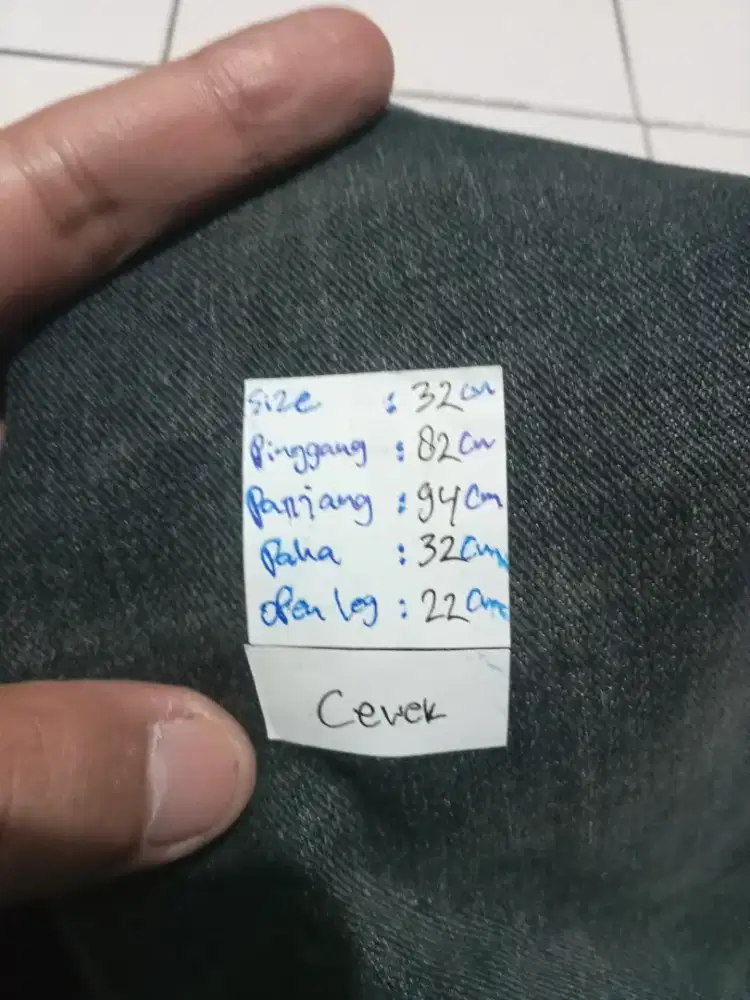 Size : 32 cm
Pinggang : 82 cm
Panjang : 94 cm
Paha : 32 cm
open leg : 22 cm
Cewek